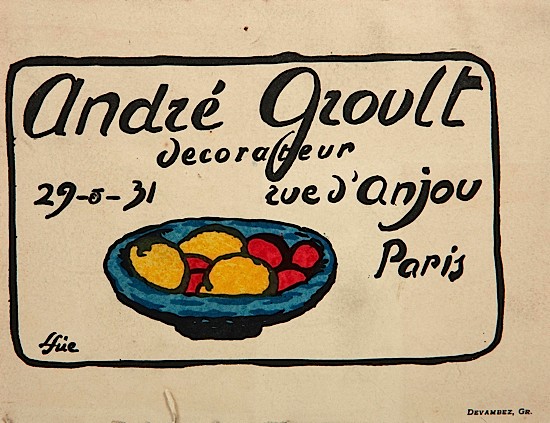 André Groult
decorateur
29-5-31 rue d'Anjou
Paris
DEVAMBEZ, GR.